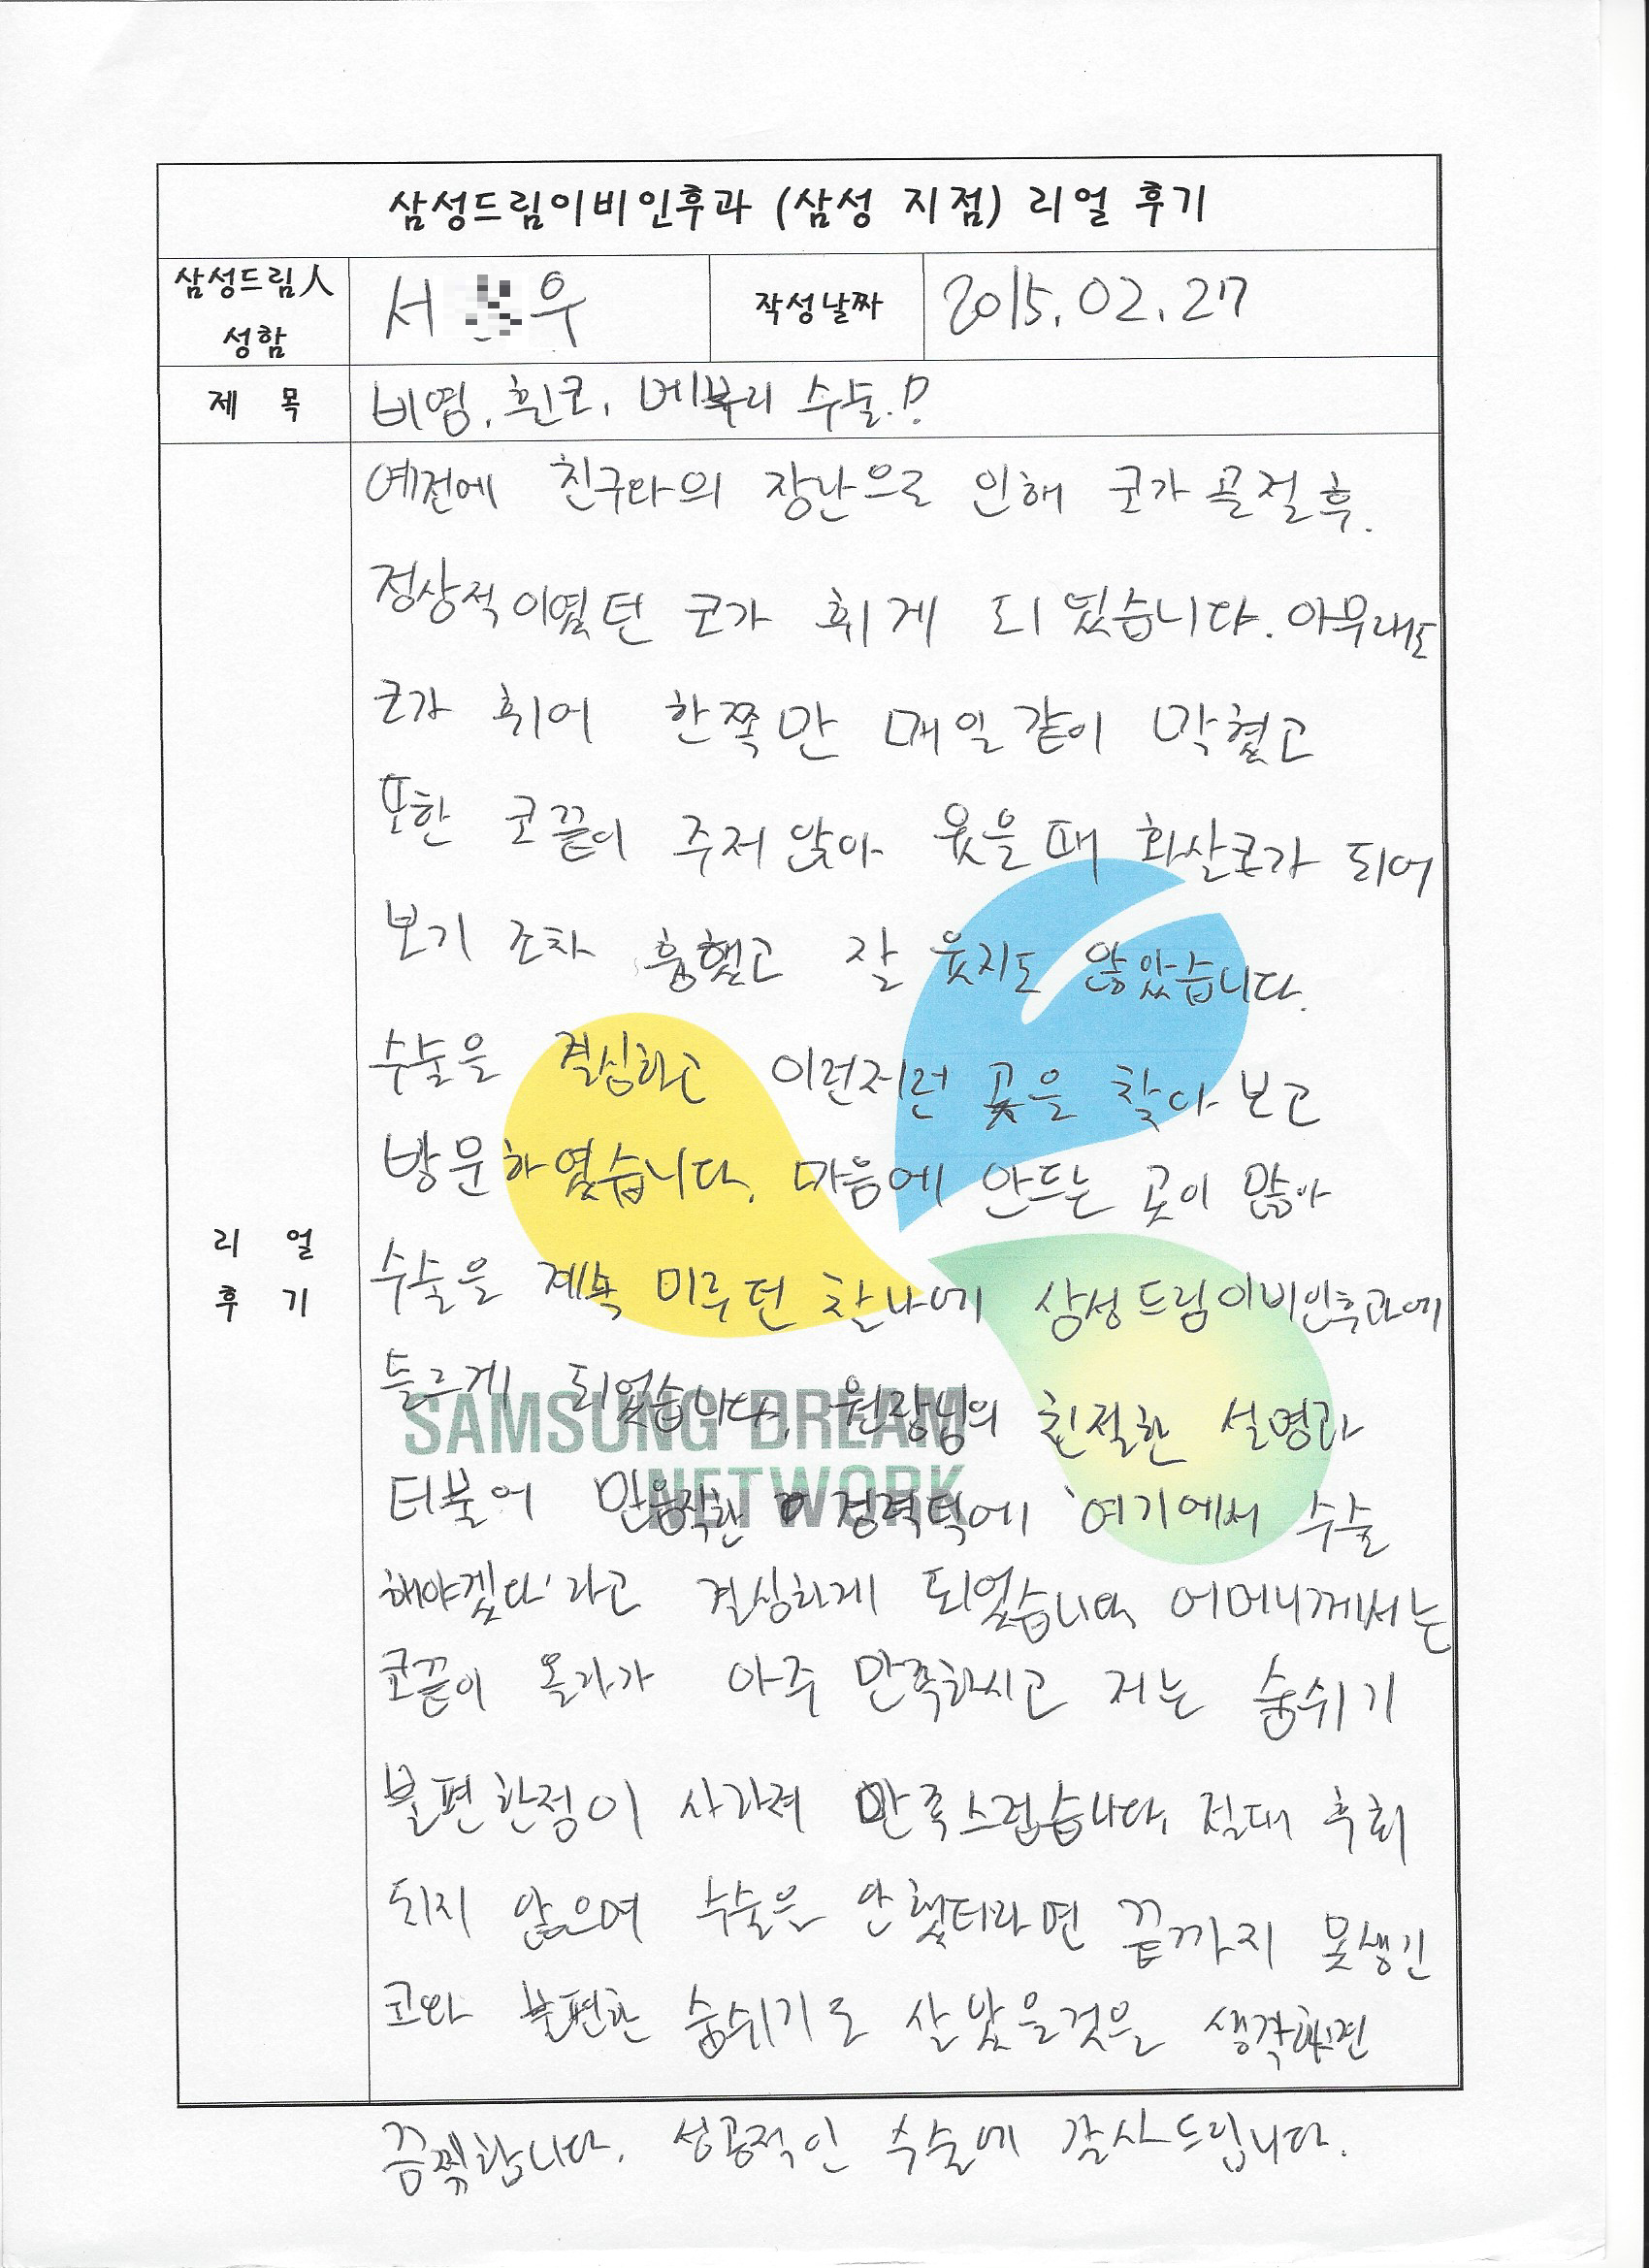 삼성드림이비인후과 (삼성 지점) 리얼 후기
삼성드림人
성함
서 우
작성날짜
2015. 02. 27
제 목
비염, 휜코, 메부리 수술.!?
리 얼
후 기
예전에 친구와의 장난으로 인해 코가 골절후.
정상적이였던 코가 휘게 되었습니다. 아무래도
코가 휘어 한쪽만 매일같이 막혔고
또한 코끝이 주저 앉아 웃을때 화살코가 되어
보기 조차 흉했고 잘 웃지도 않았습니다.
수술을 결심하고 이런저런 곳을 찾아 보고
방문하였습니다. 마음에 안드는 곳이 많아
수술을 계속 미루던 찰나에 삼성드림이비인후과에
들르게 되었습니다. 원장님의 친절한 설명과
SAMSUNG DREAM
NETWORK
더불어 믿음직한 경력덕에 '여기에서 수술
해야겠다'라고 결심하게 되었습니다. 어머니께서는
코끝이 올라가 아주 만족하시고 저는 숨쉬기
불편한점이 사라져 만족스럽습니다. 절대 후회
되지 않으며 수술을 안했더라면 끝까지 못생긴
코와 불편한 숨쉬기로 살았을것을 생각하면
끔찍합니다. 성공적인 수술에 감사드립니다.